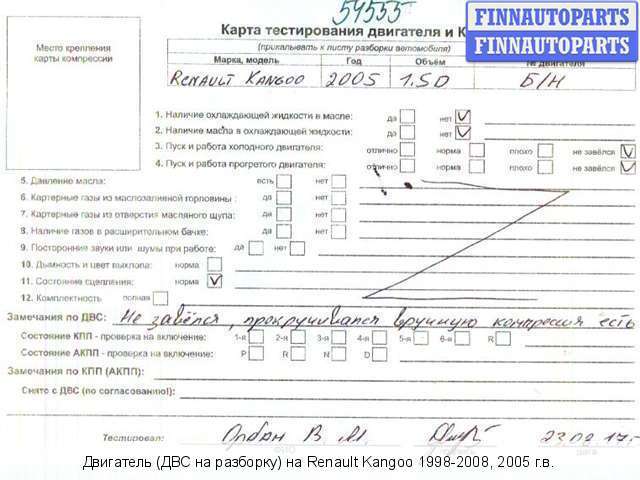 54555
FINNAUTOPARTS
FINNAUTOPARTS
Карта тестирования двигателя и К
(прикалывать к листу разборки автомобиля)
Место крепления карты компрессии
Марка, модель Год Объём № двигателя
RENAULT KANGOO 2005 1.5D Б/Н
1. Наличие охлаждающей жидкости в масле: да нет
2. Наличие масла в охлаждающей жидкости: да нет
3. Пуск и работа холодного двигателя: отлично норма плохо не завёлся
4. Пуск и работа прогретого двигателя: отлично норма плохо не завёлся
5. Давление масла: есть нет
6. Картерные газы из маслозаливной горловины: да нет
7. Картерные газы из отверстия масляного щупа: да нет
8. Наличие газов в расширительном бачке: да нет
9. Посторонние звуки или шумы при работе: да нет
10. Дымность и цвет выхлопа: норма
11. Состояние сцепления: норма
12. Комплектность полная
Замечания по ДВС: Не завёлся, прокручивался вручную компрессия есть
Состояние КПП - проверка на включение: 1-я 2-я 3-я 4-я 5-я 6-я R
Состояние АКПП - проверка на включение: P R N D
Замечания по КПП (АКПП):
Снято с ДВС (по согласованию):
Тестировал: Орбан В. М. 23.02.17г
ФИО дата
Двигатель (ДВС на разборку) на Renault Kangoo 1998-2008, 2005 г.в.